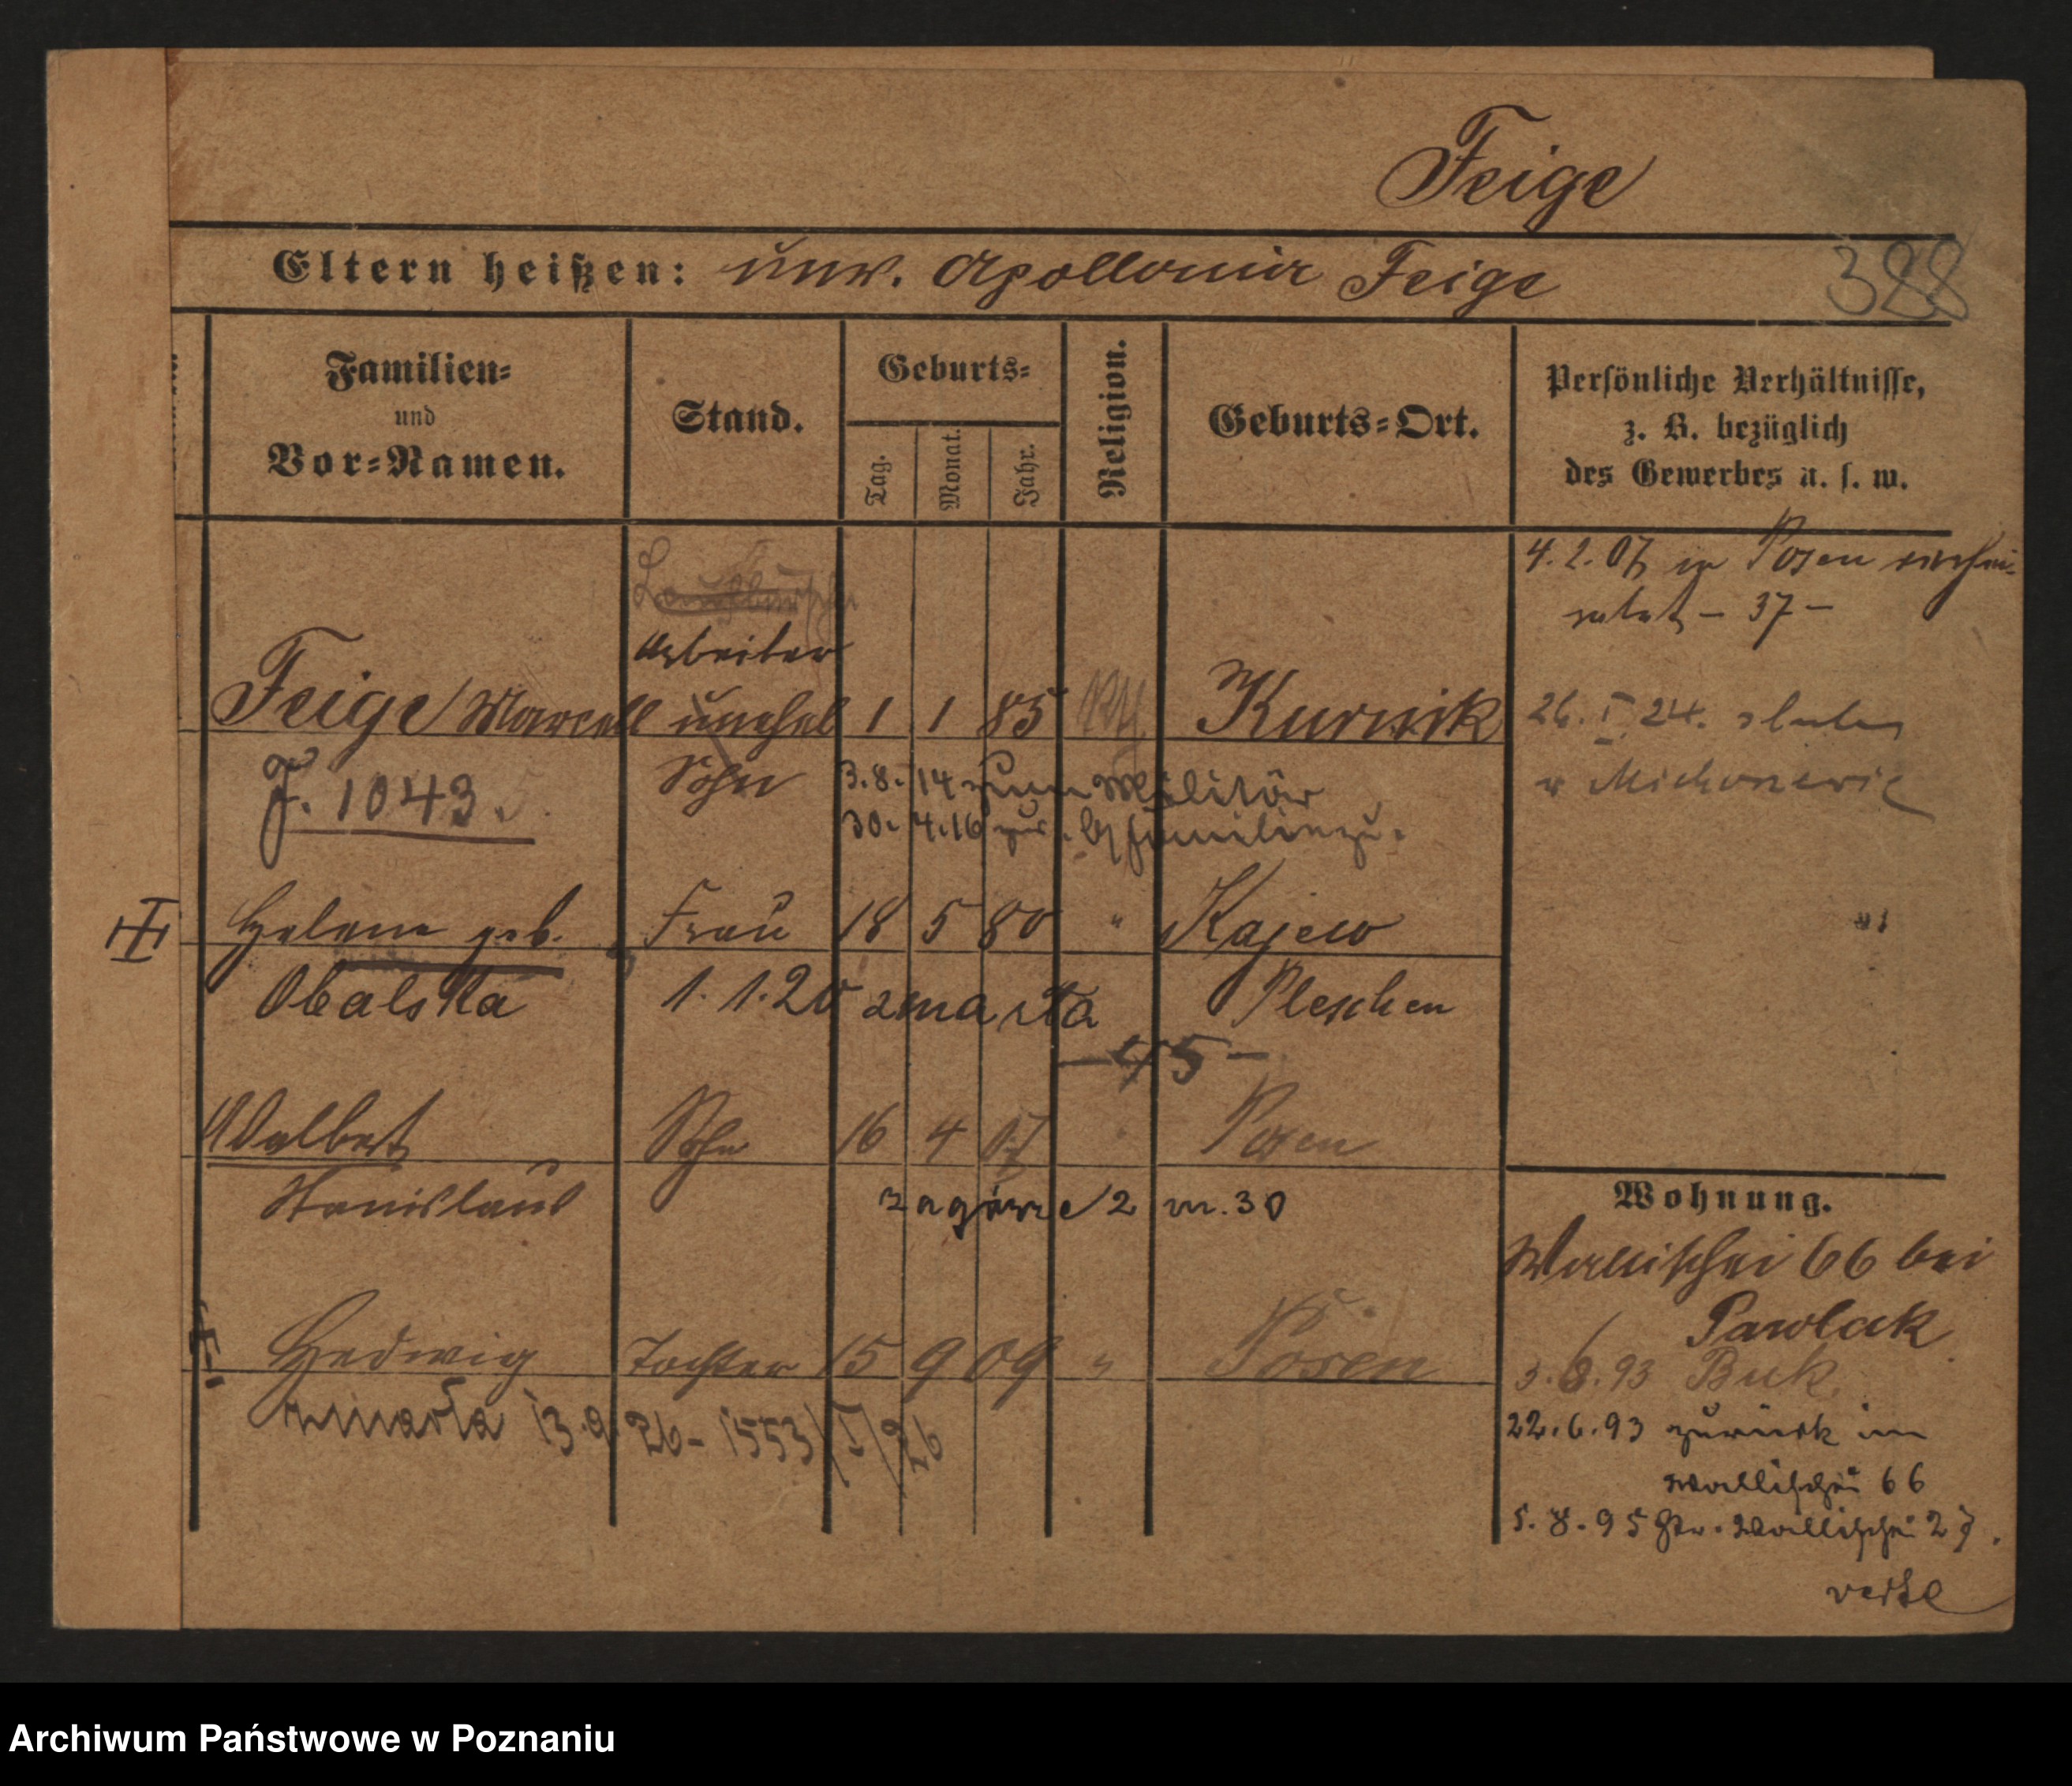 Feige
Eltern heißen: unv. Apollonia Feige
388
Familien=
und
Vor=Namen.
Stand.
Geburts=
Tag.
Monat.
Jahr.
Religion.
Geburts=Ort.
Persönliche Verhältnisse,
z. B. bezüglich
des Gewerbes u. s. w.
4. 2. 07 in Posen verhei-
ratet – 37 –
Laufbursche
Arbeiter
Feige Marcell unehel 1 1 85 Kurnik
26. I. 24.
J. 1043. Sohn 3. 8. 14 zum Militär
30. 4. 16 zur
Helene geb. Frau 18 5 80 " Kajew
Obalska 1. 1. 20 zmarła Pleschen
– 45 –
Adalbert Sohn 16 4 07 Posen
Stanislaus Zagórze 2 m. 30
Wohnung.
Wallischei 66 bei
Pawlak
Hedwig Tochter 15 9 09 " Posen
3. 6. 93 Buk.
zmarła 13. 9. 26 - 1553/I/26
22. 6. 93 zurück in
Wallischei 66
5. 8. 95 Gr. Wallischei 27.
verte
Archiwum Państwowe w Poznaniu